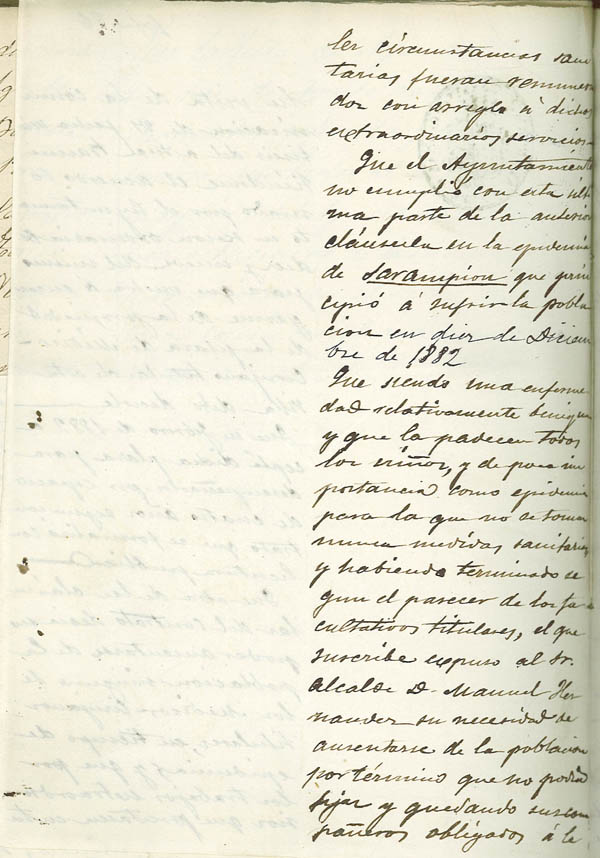 les circunstancias sani
tarias fueran remunera
dos con arreglo á dichos
extraordinarios servicios.
Que el Ayuntamiento
no cumplió con esta ulti
ma parte de la anterior
cláusula en la epidemia
de Sarampion que prin
cipió á sufrir la pobla
cion en diez de Diciem
bre de 1882
Que siendo una enferme
dad relativamente benigna
y que la padecen todos
los niños, y de poca im
portancia como epidemia
para la que no se toman
nunca medidas sanitarias
y habiendo terminado se
gun el parecer de los fa
cultativos titulares, el que
suscribe expuso al Sr.
Alcalde D. Manuel Her
nandez su necesidad de
ausentarse de la poblacion
por término que no podia
fijar y quedando sus com
pañeros obligados á le